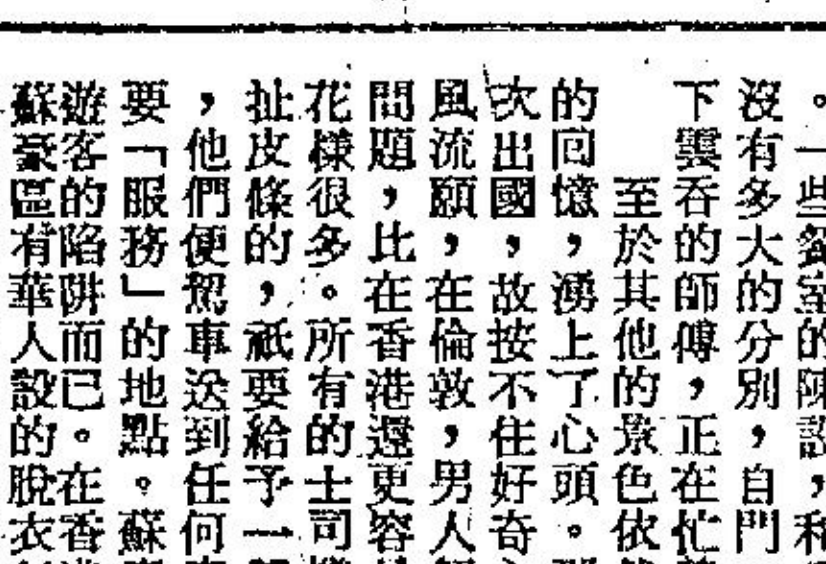 。一些餐室的陳設，和
沒有多大的分別，自門
下雲吞的師傅，正在忙着
至於其他的景色依然
的回憶，湧上了心頭。
次出國，故按不住好奇心
風流願，在倫敦，男人
問題，比在香港還更容
花樣很多。所有的士司機
扯皮條的，祇要給予一
，他們便駕車送到任何
要「服務」的地點。蘇
遊客的陷阱而已。在香港
蘇豪區有華人設的脫衣